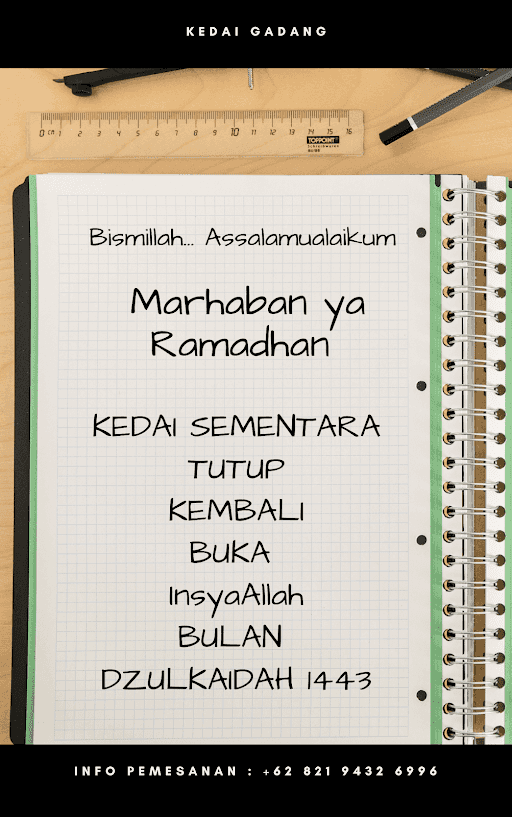 KEDAI GADANG
0 CM 1 2 3 4 5 6 7 8 9 10 11 12 13 14 15 16
TOPPOINT
Bismillah... Assalamualaikum
Marhaban ya
Ramadhan
KEDAI SEMENTARA
TUTUP
KEMBALI
BUKA
InsyaAllah
BULAN
DZULKAIDAH 1443
INFO PEMESANAN : +62 821 9432 6996